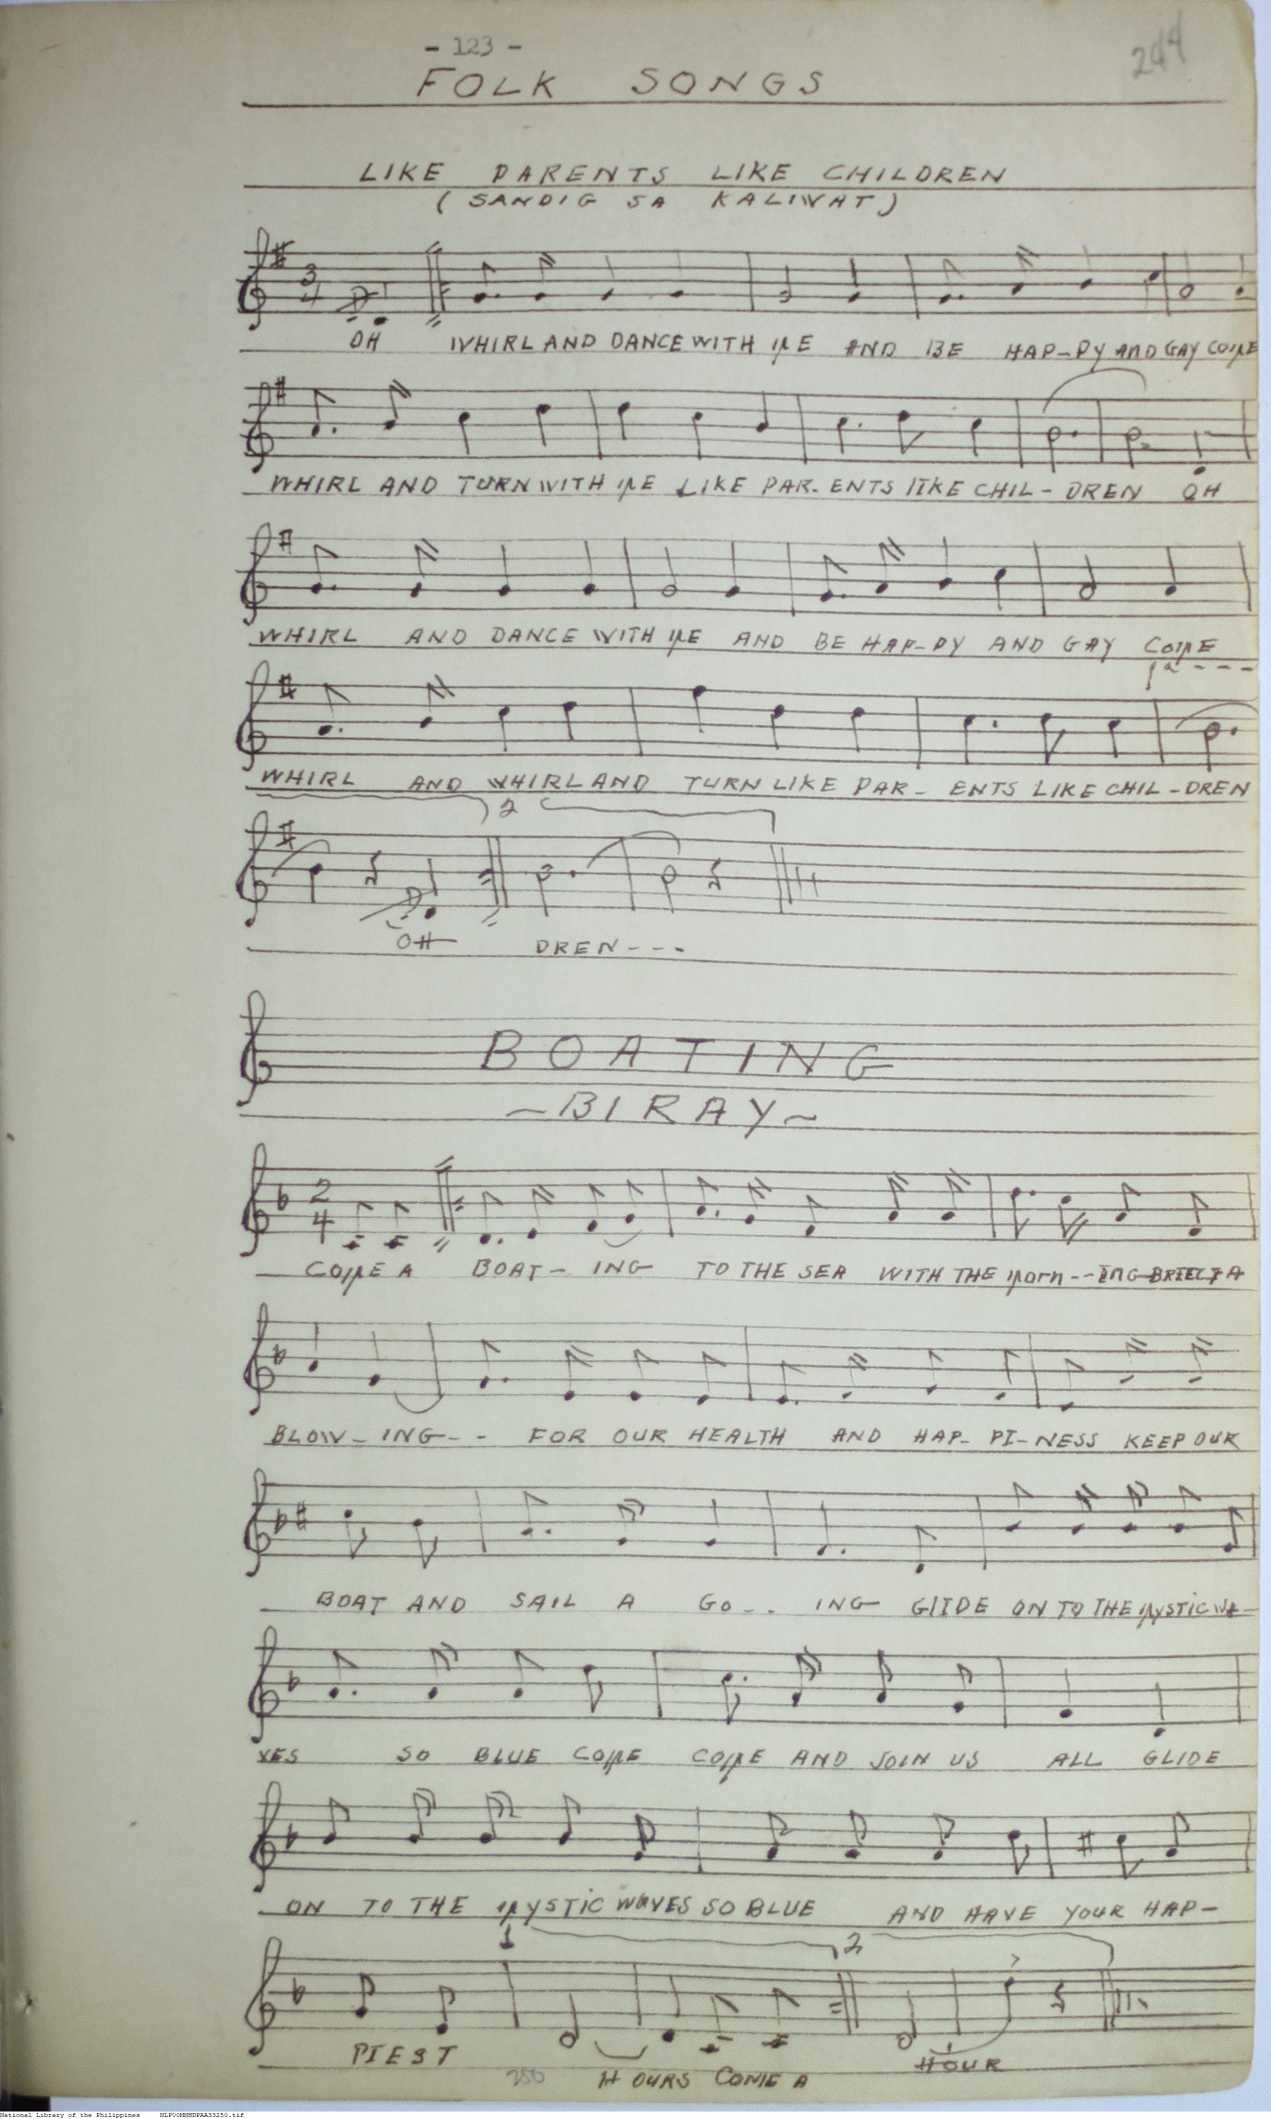 - 123 -
244
FOLK SONGS
LIKE PARENTS LIKE CHILDREN
(SANDIG SA KALIWAT)
3
4
OH WHIRL AND DANCE WITH ME AND BE HAP-PY AND GAY COME
WHIRL AND TURN WITH ME LIKE PAR-ENTS LIKE CHIL-DREN OH
WHIRL AND DANCE WITH ME AND BE HAP-PY AND GAY COME
1a - - -
WHIRL AND WHIRL AND TURN LIKE PAR-ENTS LIKE CHIL-DREN
2
OH DREN - - -
BOATING
~BIRAY~
2
4
COME A BOAT-ING TO THE SEA WITH THE Morn--ING A
BLOW-ING-- FOR OUR HEALTH AND HAP-PI-NESS KEEP OUR
BOAT AND SAIL A GO-- ING GLIDE ON TO THE MYSTIC WA-
VES SO BLUE COME COME AND JOIN US ALL GLIDE
ON TO THE MYSTIC WAVES SO BLUE AND HAVE YOUR HAP-
1 2
PIEST HOURS COME A HOUR
250
National Library of the Philippines NLPOOMBNDPAA33250.tif